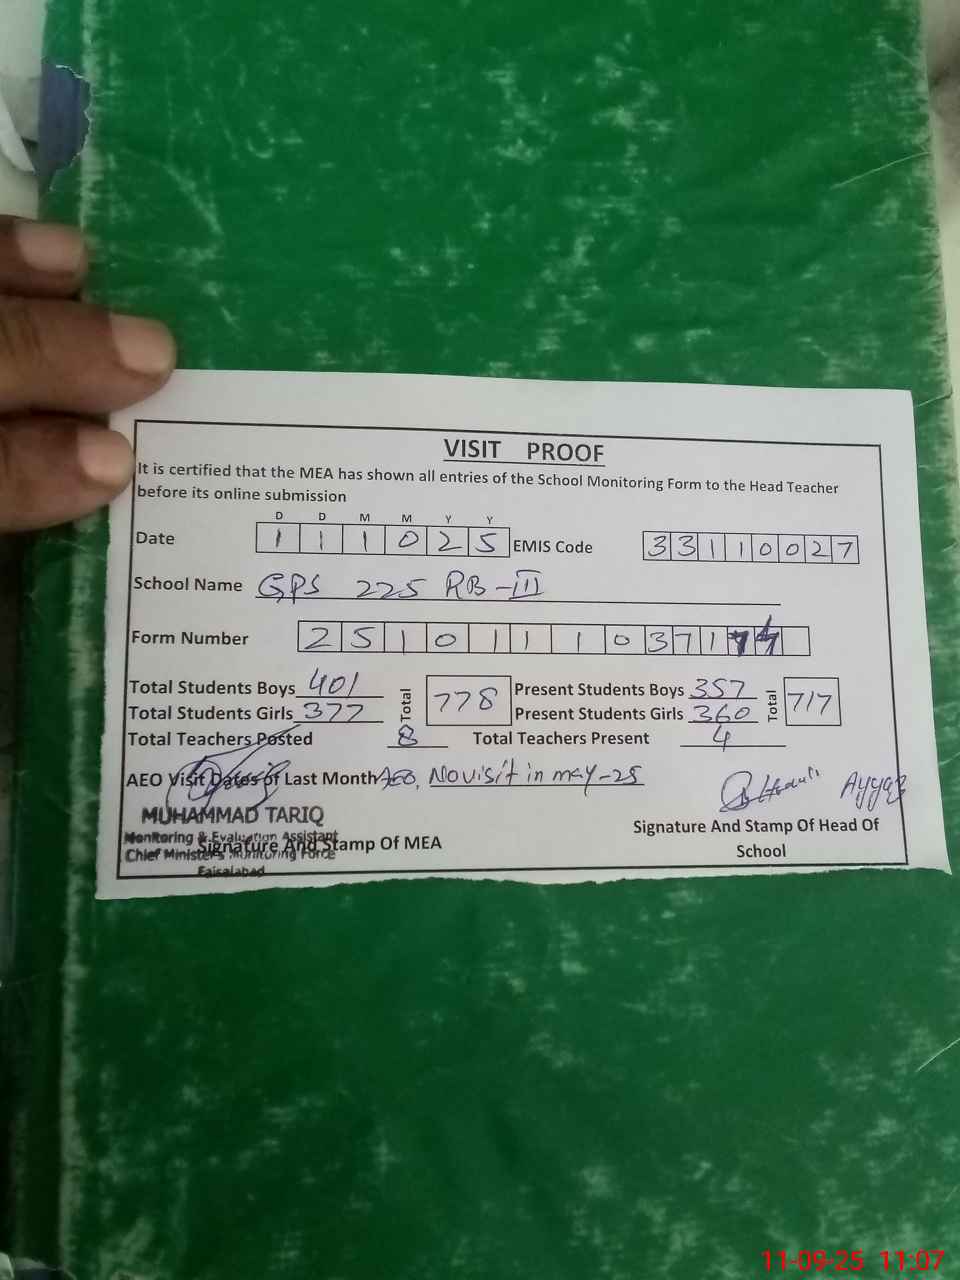 VISIT PROOF
It is certified that the MEA has shown all entries of the School Monitoring Form to the Head Teacher
before its online submission
D D M M Y Y
Date 1 1 1 0 2 5 EMIS Code 3 3 1 1 0 0 2 7
School Name GPS 225 RB-III
Form Number 2 5 1 0 1 1 1 0 3 7 1
Total Students Boys 401 Total 778 Present Students Boys 357 Total 717
Total Students Girls 377 Present Students Girls 360
Total Teachers Posted 8 Total Teachers Present 4
AEO Visit Dates of Last Month AEO, No visit in may-25
MUHAMMAD TARIQ
Monitoring & Evaluation Assistant
Signature And Stamp Of MEA
Chief Minister's Monitoring Force
Faisalabad
Signature And Stamp Of Head Of
School
11-09-25 11:07